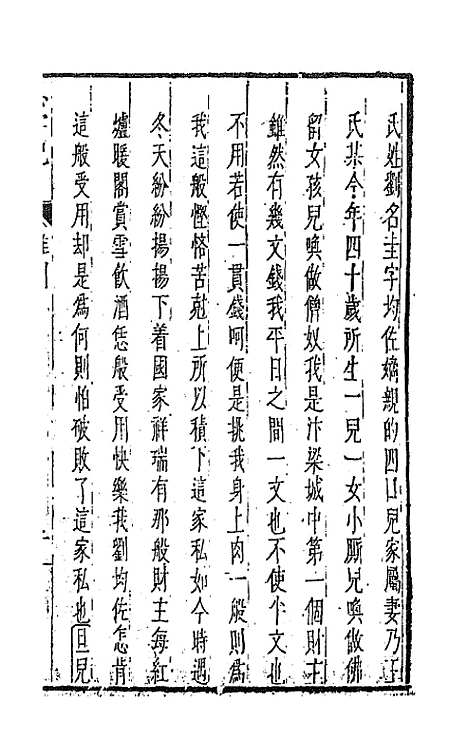 氏姓劉名圭字均佐嫡親的四口兒家屬妻乃王
氏某今年四十歲所生一兒一女小廝兒喚做佛
留女孩兒喚做僧奴我是汴梁城中第一個財主
雖然有幾文錢我平日之間一文也不使半文也
不用若使一貫錢呵便是挑我身上肉一般則爲
我這般慳悋苦尅上所以積下這家私如今時遇
冬天紛紛揚揚下着國家祥瑞有那般財主每紅
爐暖閣賞雪飲酒恁般受用快樂我劉均佐怎肯
這般受用却是爲何則怕破敗了這家私也旦兒